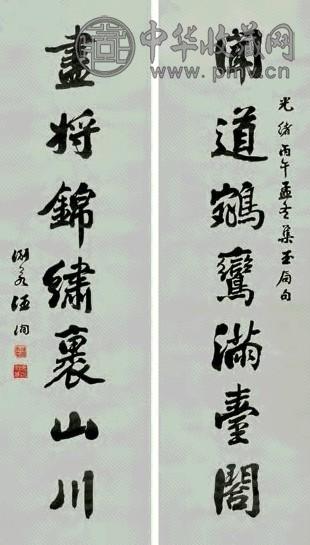 中华收藏网
www.pmv.cn
光緒丙午孟冬集玉局句
聞道鵷鸞滿臺閣
盡將錦繡裹山川
淵若汪洵